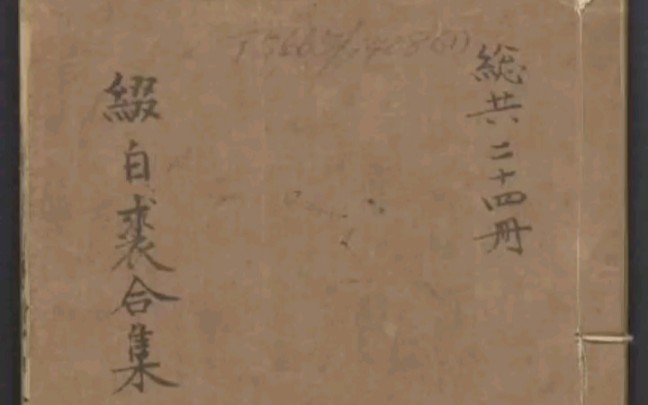 總共二十四冊
綴白裘合集